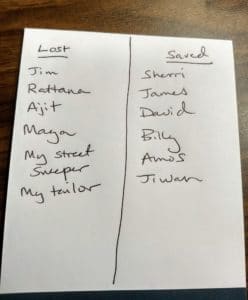 Lost
Jim
Rattana
Ajit
Maya
My street
Sweeper
My tailor
Saved
Sherri
James
David
Billy
Amos
Jiwan